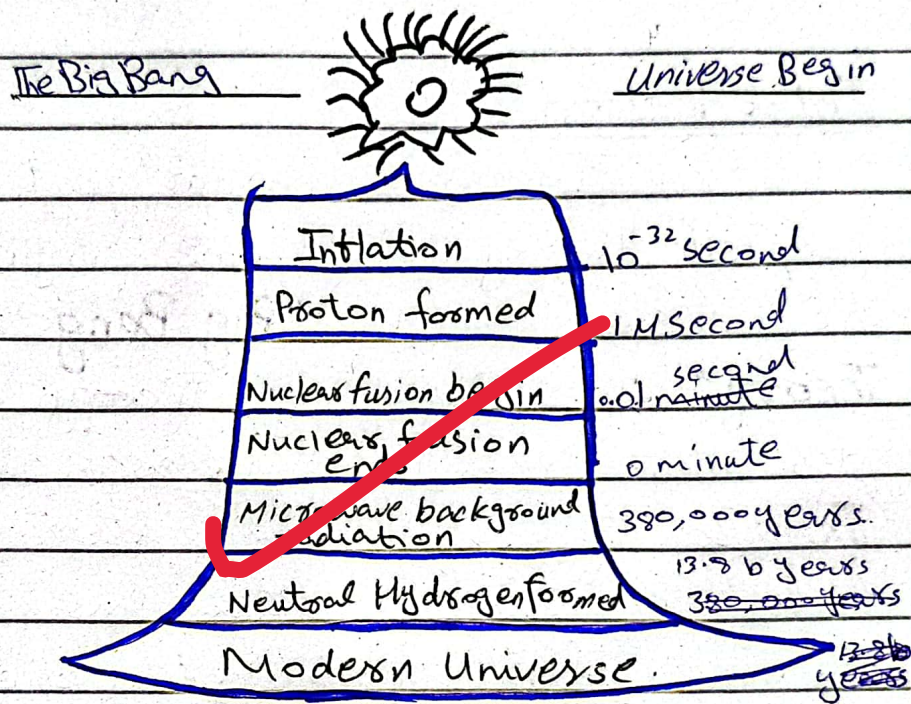 The Big Bang
Universe Begin
Inflation
10^-32 second
Proton formed
1 M Second
Nuclear fusion begin
second
0.01 minute
Nuclear fusion
ends
0 minute
Microwave background
radiation
380,000 years.
13.8 b years
Neutral Hydrogen formed
380,000 years
Modern Universe.
13.8 b
years